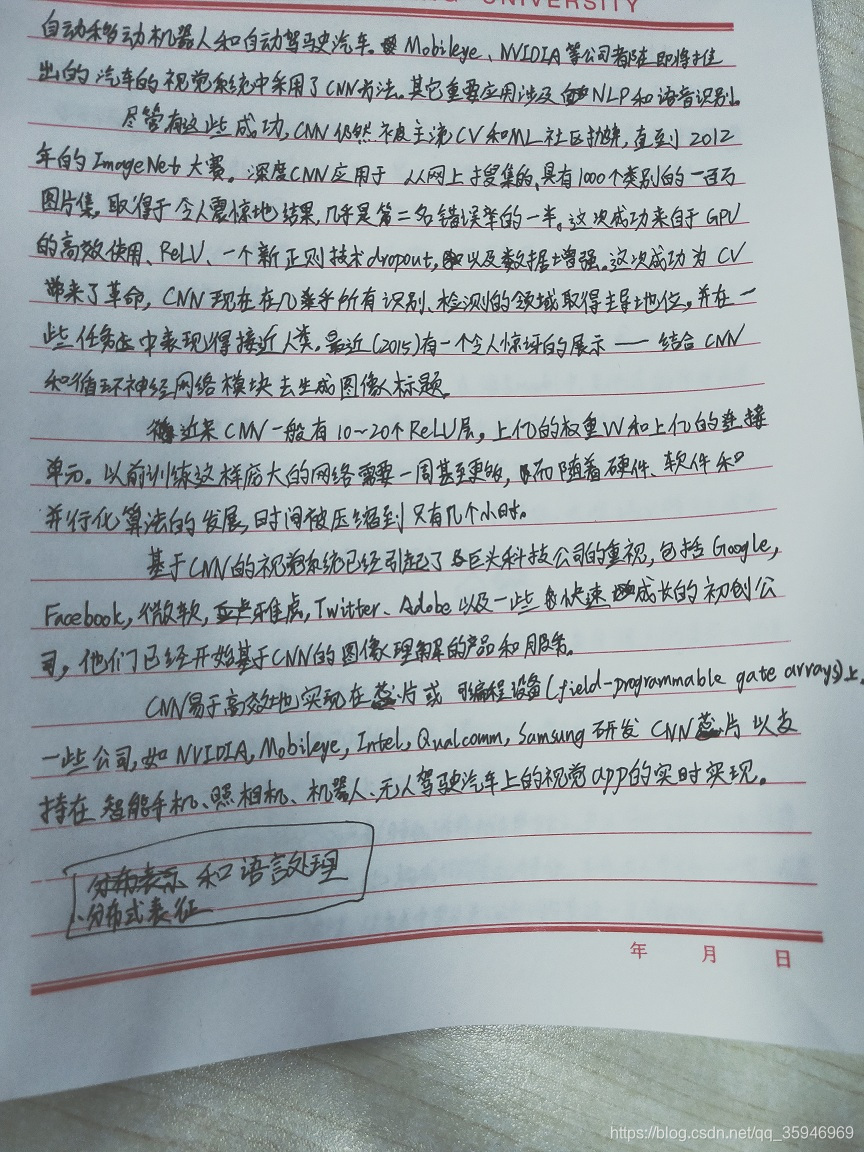 UNIVERSITY
自动移动机器人和自动驾驶汽车。Mobileye、NVIDIA等公司都在即将推
出的汽车的视觉系统中采用了CNN方法。其它重要应用涉及NLP和语音识别。
尽管有这些成功,CNN仍然被主流CV和ML社区抛弃,直到2012
年的ImageNet大赛。深度CNN应用于 从网上搜集的、具有1000个类别的一百万
图片集,取得于令人震惊地结果,几乎是第二名错误率的一半。这次成功来自于GPU
的高效使用、ReLU、一个新正则技术dropout,以及数据增强。这次成功为CV
带来了革命,CNN现在在几乎所有识别、检测的领域取得主导地位,并在一
些任务中表现得接近人类。最近(2015)有一个令人惊讶的展示——结合CNN
和循环神经网络模块去生成图像标题。
近来CNN一般有10~20个ReLU层,上亿的权重W和上亿的连接
单元。以前训练这样庞大的网络需要一周甚至更够,而随着硬件、软件和
并行化算法的发展,时间被压缩到只有几个小时。
基于CNN的视觉系统已经引起了各巨头科技公司的重视,包括Google,
Facebook,微软,雅虎,Twitter、Adobe以及一些快速成长的初创公
司,他们已经开始基于CNN的图像理解的产品和服务。
CNN易于高效地实现在芯片或 可编程设备(field-programmable gate arrays)上。
一些公司,如NVIDIA,Mobileye,Intel,Qualcomm,Samsung研发 CNN芯片 以支
持在智能手机、照相机、机器人、无人驾驶汽车上的视觉app的实时实现。
分布表示 和语言处理
分布式表征
年 月 日
https://blog.csdn.net/qq_35946969